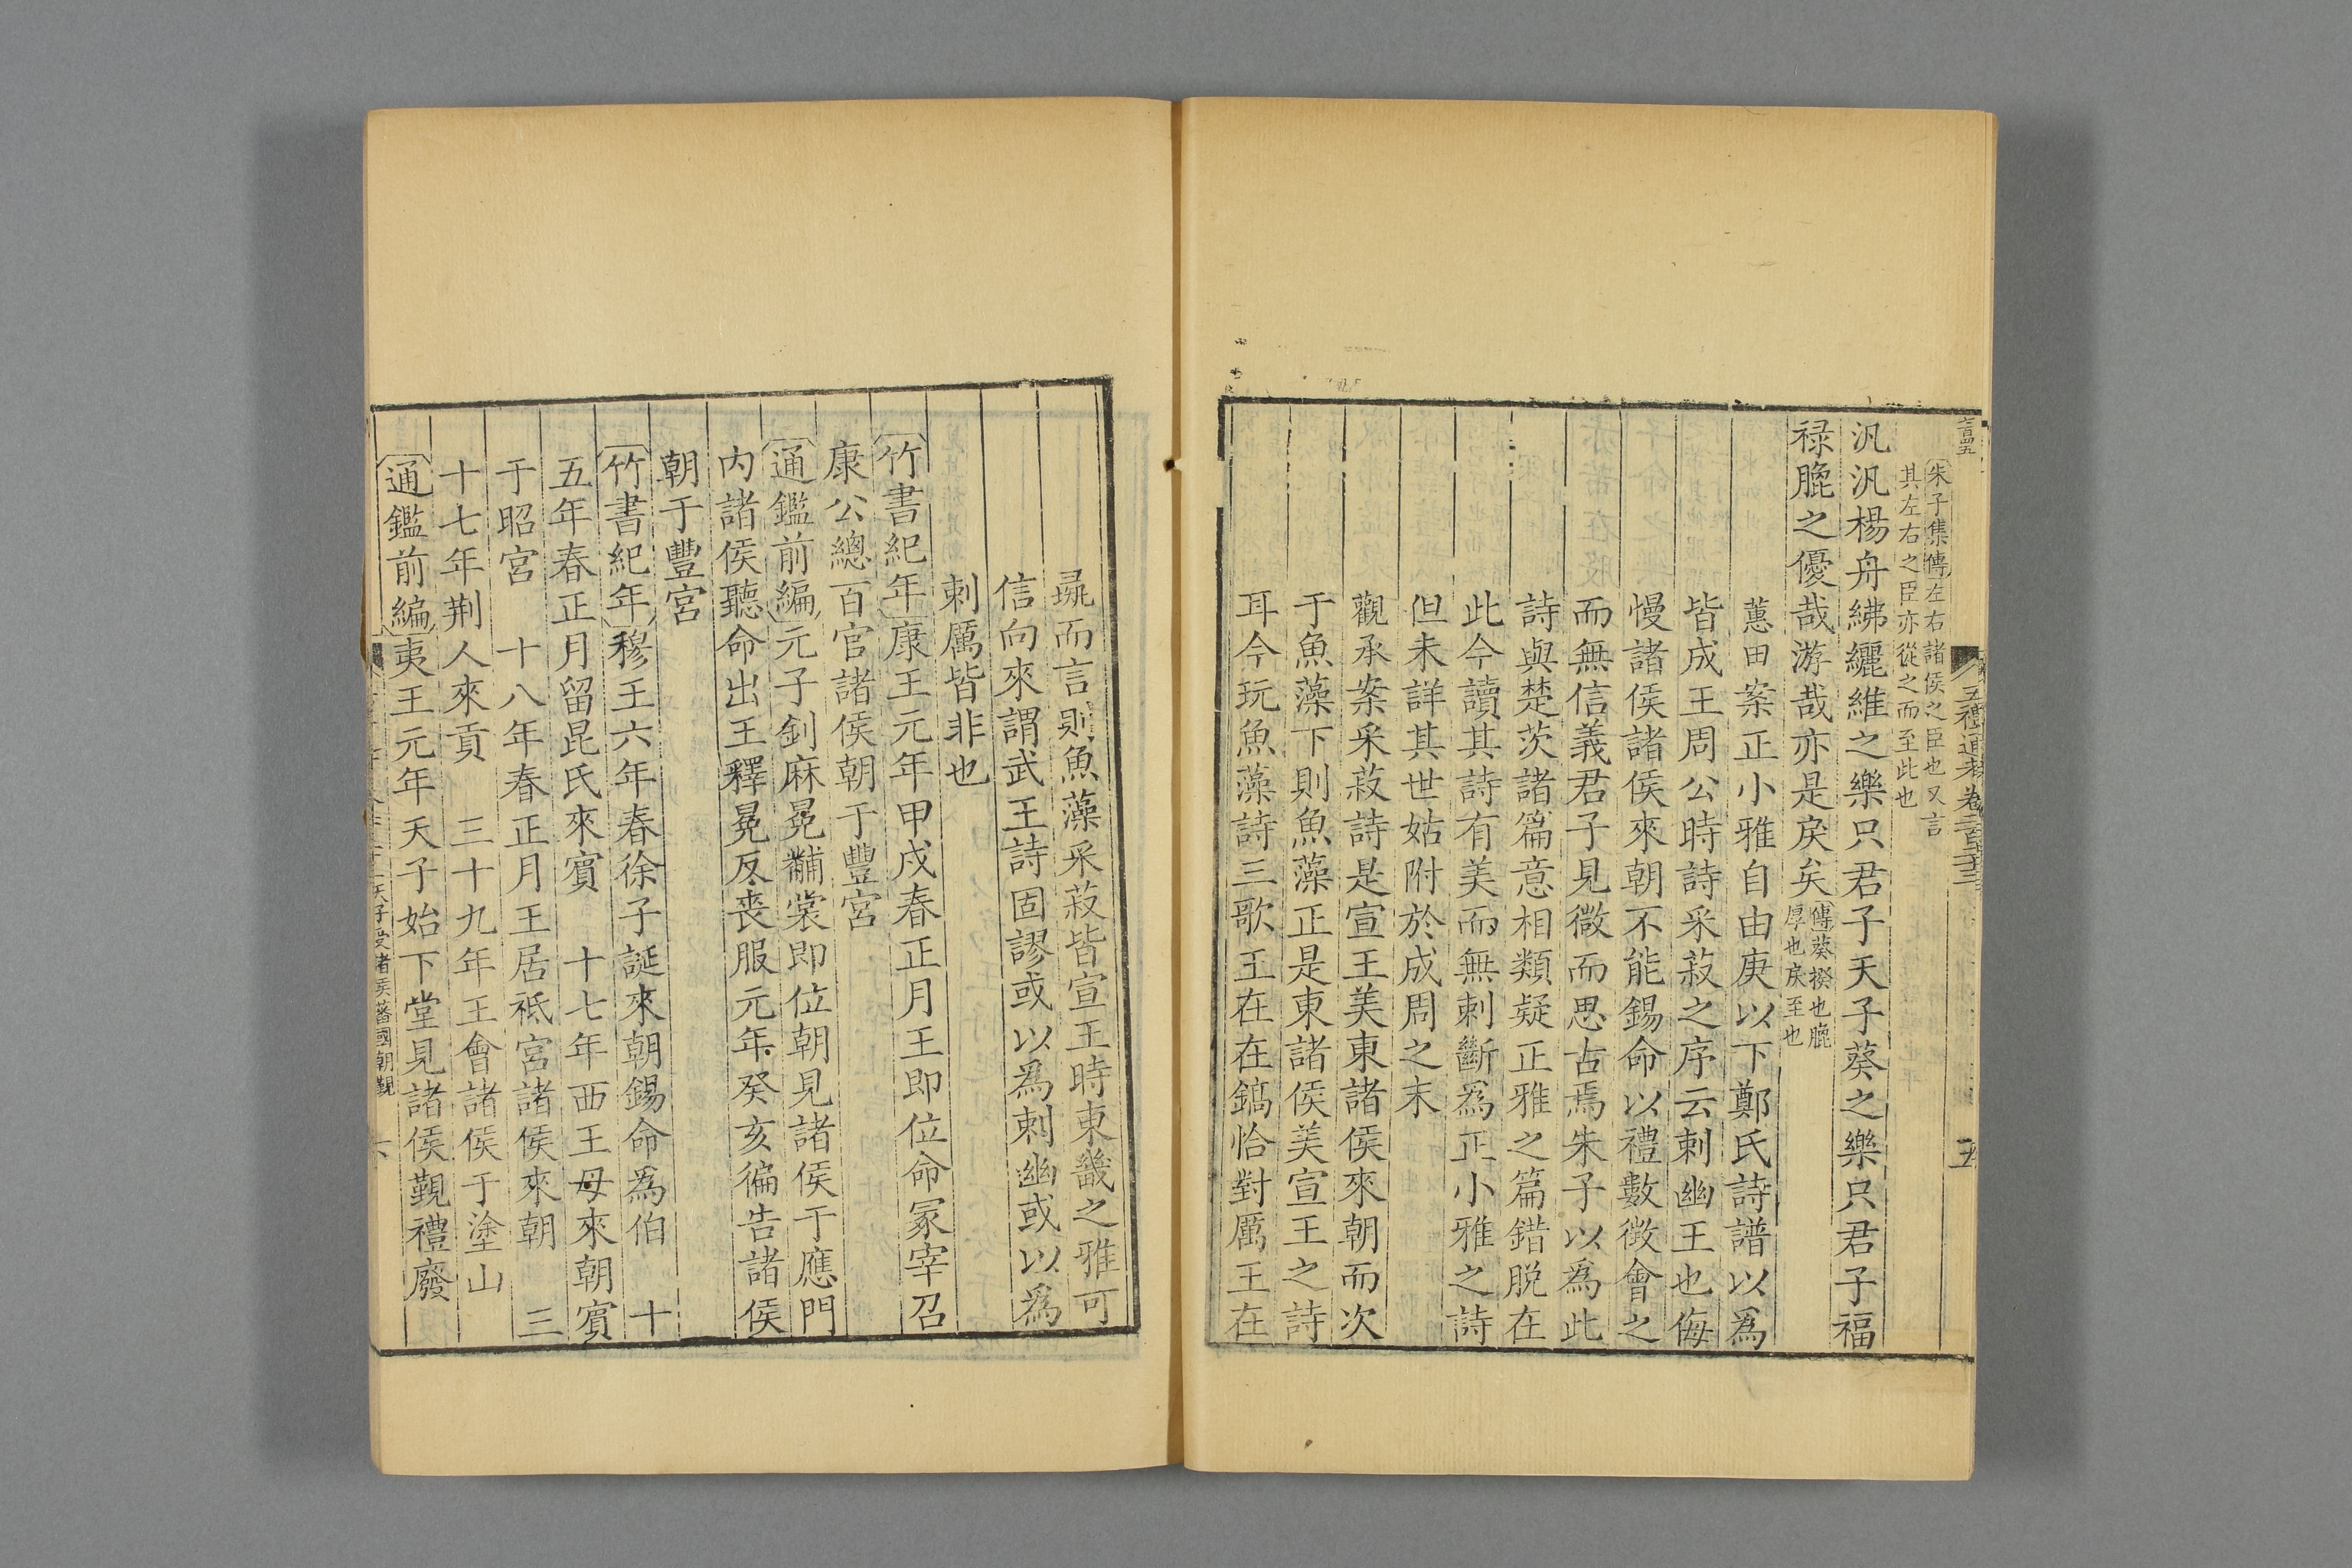 五禮通考卷二百二十三
五
朱子集傳左右諸侯之臣也又言
其左右之臣亦從之而至此也
汎汎楊舟紼纚維之樂只君子天子葵之樂只君子福
祿膍之優哉游哉亦是戾矣傳葵揆也膍
厚也戾至也
蕙田案正小雅自由庚以下鄭氏詩譜以爲
皆成王周公時詩采菽之序云刺幽王也侮
慢諸侯諸侯來朝不能錫命以禮數徵會之
而無信義君子見微而思古焉朱子以爲此
詩與楚茨諸篇意相類疑正雅之篇錯脫在
此今讀其詩有美而無刺斷爲正小雅之詩
但未詳其世姑附於成周之末
觀承案采菽詩是宣王美東諸侯來朝而次
于魚藻下則魚藻正是東諸侯美宣王之詩
耳今玩魚藻詩三歌王在在鎬恰對厲王在
彘而言則魚藻采菽皆宣王時東畿之雅可
信向來謂武王詩固謬或以爲刺幽或以爲
刺厲皆非也
竹書紀年康王元年甲戌春正月王即位命冢宰召
康公總百官諸侯朝于豐宮
通鑑前編元子釗麻冕黼裳即位朝見諸侯于應門
内諸侯聽命出王釋冕反喪服元年癸亥徧告諸侯
朝于豐宮
竹書紀年穆王六年春徐子誕來朝錫命爲伯　十
五年春正月留昆氏來賓　十七年西王母來朝賓
于昭宮　十八年春正月王居祗宮諸侯來朝　三
十七年荆人來貢　三十九年王會諸侯于塗山
通鑑前編夷王元年天子始下堂見諸侯覲禮廢
天子受諸侯蕃國朝覲
六